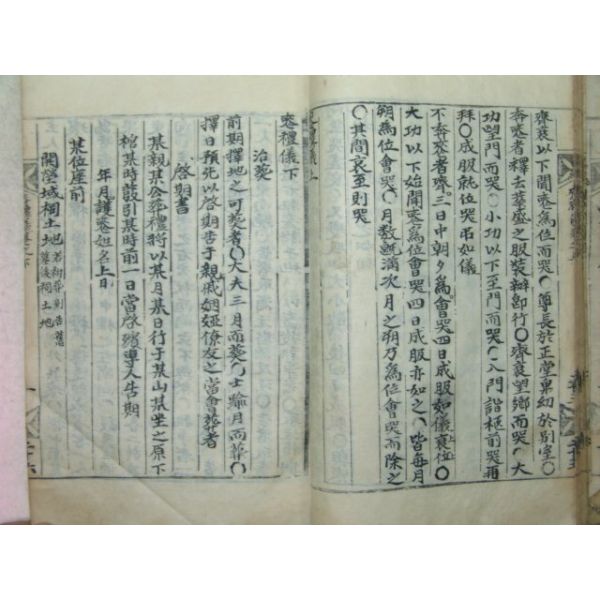 齊衰以下聞喪爲位而哭○尊長於正堂卑幼於別室○
奔喪者釋去華盛之服裝辦卽行○齊衰望鄉而哭○大
功望門而哭○小功以下至門而哭○入門詣柩前哭再
拜○成服就位哭吊如儀
不奔喪者齊三日中朝夕爲會哭四日成服如儀衰位○
大功以下始聞喪爲位會哭四日成服亦如之○皆每月
朔爲位會哭○月數旣滿次月之朔乃爲位會哭而除之
○其間哀至則哭
喪禮儀下
治葬
前期擇地之可葬者○大夫三月而葬○士踰月而葬○
擇日預先以啓期告于親戚姻婭僚友之當會葬者
啓期書
某親某公葬禮將以某月某日行于某山某坐之原下
棺某時發引某時前一日當啓殯專人告期
年月護喪姓名上日
某位座前
開塋域祠土地